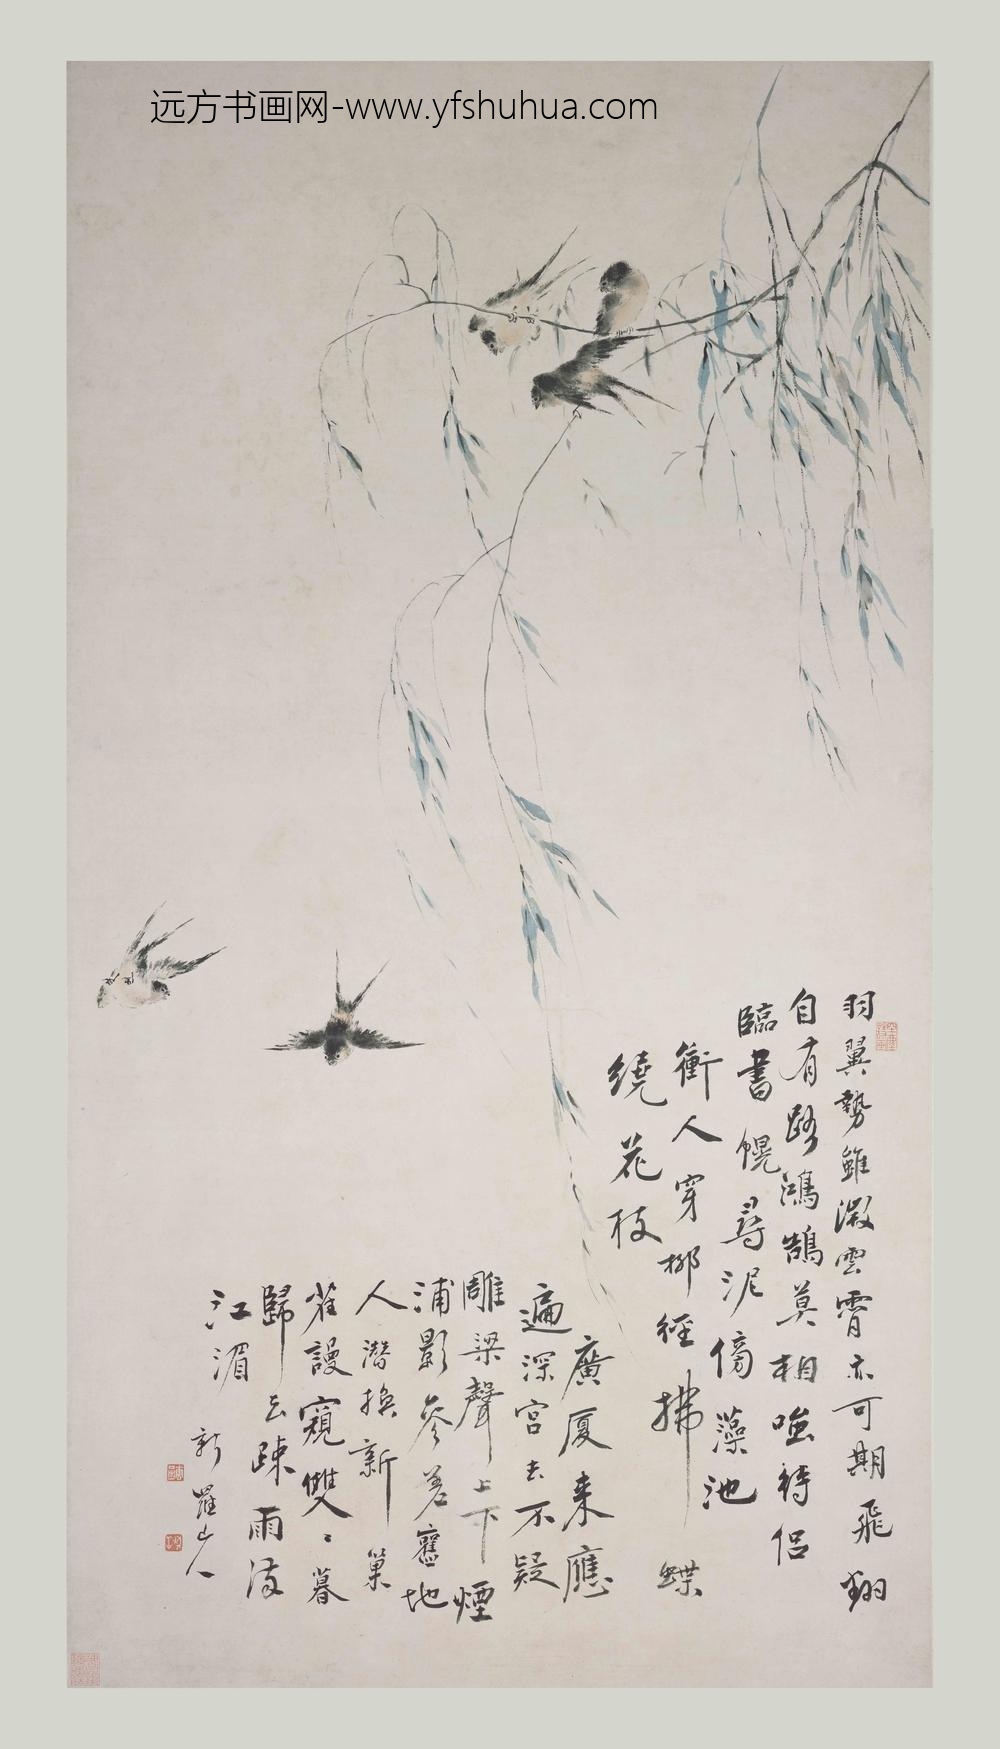 远方书画网-www.yfshuhua.com
羽翼勢雖微雲霄亦可期飛翔
自有路鴻鵠莫相嗤待侶
臨書幌尋泥傍藻池
衝人穿柳徑拂蝶
繞花枝
廣厦来應
遍深宮去不疑
雕梁聲上下煙
浦影參差舊地
人潜換新巢
雀謾窺雙〻暮
歸去疎雨滿
江湄
新羅山人